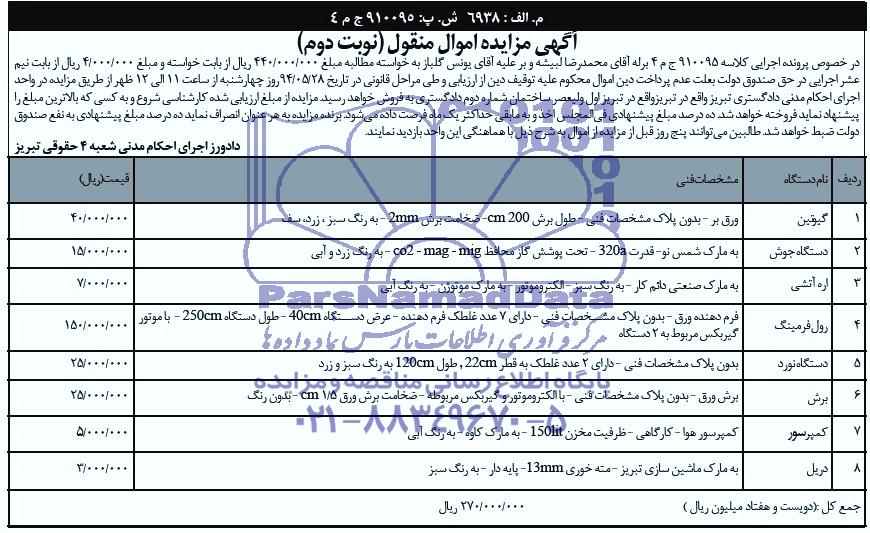 م. الف : ۶۹۳۸   ش. پ: ۹۱۰۰۹۵ ج م ۴
آگهی مزایده اموال منقول (نوبت دوم)
در خصوص پرونده اجرایی کلاسه ۹۱۰۰۹۵ ج م ۴ برله آقای محمدرضا لبیشه و بر علیه آقای یونس گلباز به خواسته مطالبه مبلغ ۴۴۰/۰۰۰/۰۰۰ ریال از بابت خواسته و مبلغ ۴/۰۰۰/۰۰۰ ریال از بابت نیم
عشر اجرایی در حق صندوق دولت بعلت عدم پرداخت دین اموال محکوم علیه توقیف دین از ارزیابی و طی مراحل قانونی در تاریخ ۹۴/۰۵/۲۸ روز چهارشنبه از ساعت ۱۱ الی ۱۲ ظهر از طریق مزایده در واحد
اجرای احکام مدنی دادگستری تبریز واقع در تبریزواقع در تبریز اول ولیعصر ساختمان شماره دوم دادگستری به فروش خواهد رسید. مزایده از مبلغ ارزیابی شده کارشناسی شروع و به کسی که بالاترین مبلغ را
پیشنهاد نماید فروخته خواهد شد. ده درصد مبلغ پیشنهادی فی‌المجلس اخذ و به مابقی حداکثر یک ماه فرصت داده می‌شود. برنده مزایده به هر عنوان انصراف نماید ده درصد مبلغ پیشنهادی به نفع صندوق
دولت ضبط خواهد شد. طالبین می‌توانند پنج روز قبل از مزایده از اموال به شرح ذیل با هماهنگی این واحد بازدید نمایند.
دادورز اجرای احکام مدنی شعبه ۴ حقوقی تبریز
ردیف نام دستگاه مشخصات فنی قیمت(ریال)
۱ گیوتین ورق بر - بدون پلاک مشخصات فنی - طول برش 200 cm- ضخامت برش 2mm - به رنگ سبز ، زرد، سف ۴۰/۰۰۰/۰۰۰
۲ دستگاه جوش به مارک شمس نو- قدرت 320a - تحت پوشش گاز محافظ co2 - mag - mig - به رنگ زرد و آبی ۱۵/۰۰۰/۰۰۰
۳ اره آتشی به مارک صنعتی دائم کار - به رنگ سبز - الکتروموتور - به مارک موتوژن - به رنگ آبی ۷/۰۰۰/۰۰۰
۴ رول فرمینگ فرم دهنده ورق - بدون پلاک مشخصات فنی - دارای ۷ عدد غلطک فرم دهنده - عرض دستگاه 40cm - طول دستگاه 250cm - با موتور
گیربکس مربوط به ۲ دستگاه ۱۵۰/۰۰۰/۰۰۰
۵ دستگاه نورد بدون پلاک مشخصات فنی - دارای ۲ عدد غلطک به قطر 22cm , طول 120cm به رنگ سبز و زرد ۲۵/۰۰۰/۰۰۰
۶ برش برش ورق - بدون پلاک مشخصات فنی - با الکتروموتور و گیربکس مربوطه - ضخامت برش ورق ۱/۵ cm - بدون رنگ ۲۵/۰۰۰/۰۰۰
۷ کمپرسور کمپرسور هوا - کارگاهی - ظرفیت مخزن 150lit - به مارک کاوه - به رنگ آبی ۵/۰۰۰/۰۰۰
۸ دریل به مارک ماشین سازی تبریز - مته خوری 13mm - پایه دار - به رنگ سبز ۳/۰۰۰/۰۰۰
جمع کل :(دویست و هفتاد میلیون ریال ) ۲۷۰/۰۰۰/۰۰۰ ریال
ParsNamadData
مرکز فرآوری اطلاعات پارس نماد داده ها
پایگاه اطلاع رسانی مناقصه و مزایده
۰۲۱-۸۸۳۴۹۶۷۰-۵